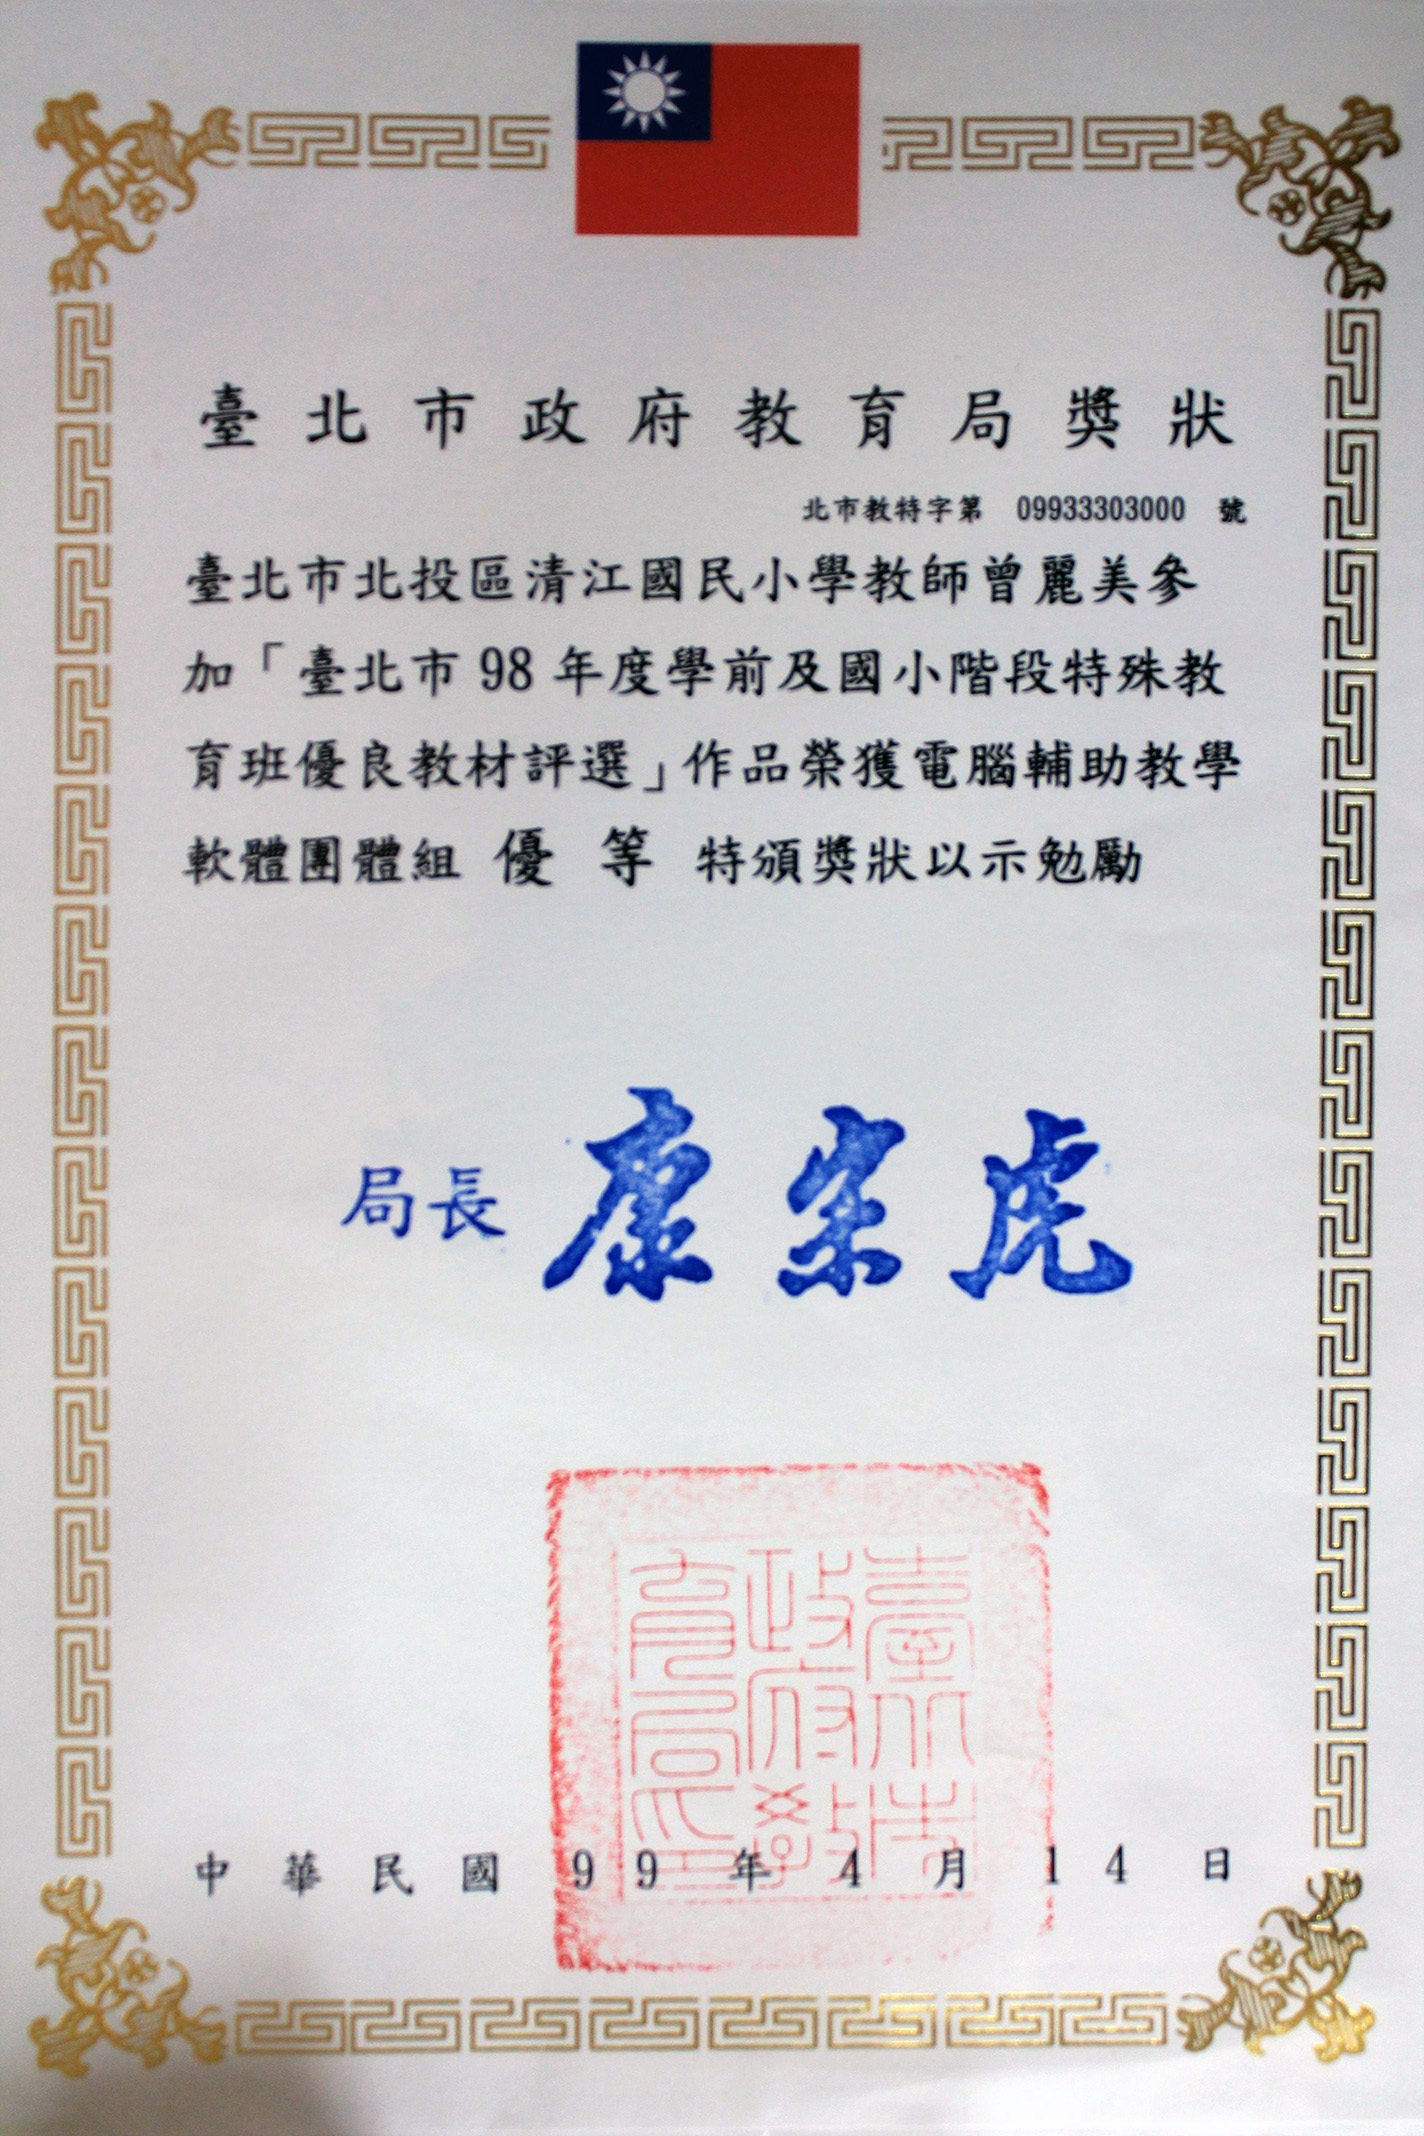 臺北市政府教育局獎狀
北市教特字第 09933303000 號
臺北市北投區清江國民小學教師曾麗美參
加「臺北市 98 年度學前及國小階段特殊教
育班優良教材評選」作品榮獲電腦輔助教學
軟體團體組 優 等 特頒獎狀以示勉勵
局長 康宗虎
臺北市
政府教
育局印
中華民國 99 年 4 月 14 日